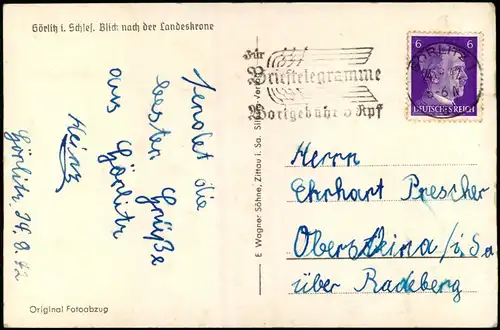 Görlitz i. Schles. Blick nach der Landeskrone
Sendet die
besten Grüße
aus Görlitz
Heinz
Görlitz, 24.9.42
Original Fotoabzug
E. Wagner Söhne, Zittau i. Sa.
Für
Brieftelegramme
Wortgebühr 5 Rpf
GÖRLITZ
6 6
DEUTSCHES REICH
Herrn
Ehrhart Prescher
Obersteina/i.Sa
über Radeberg